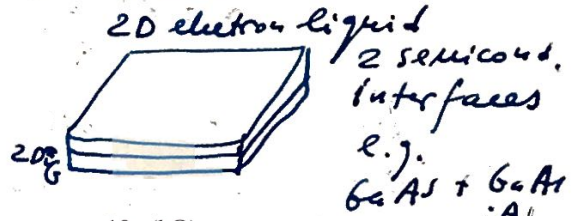 2D electron liquid
2 semicond.
interfaces
e.g.
GaAs + GaAs